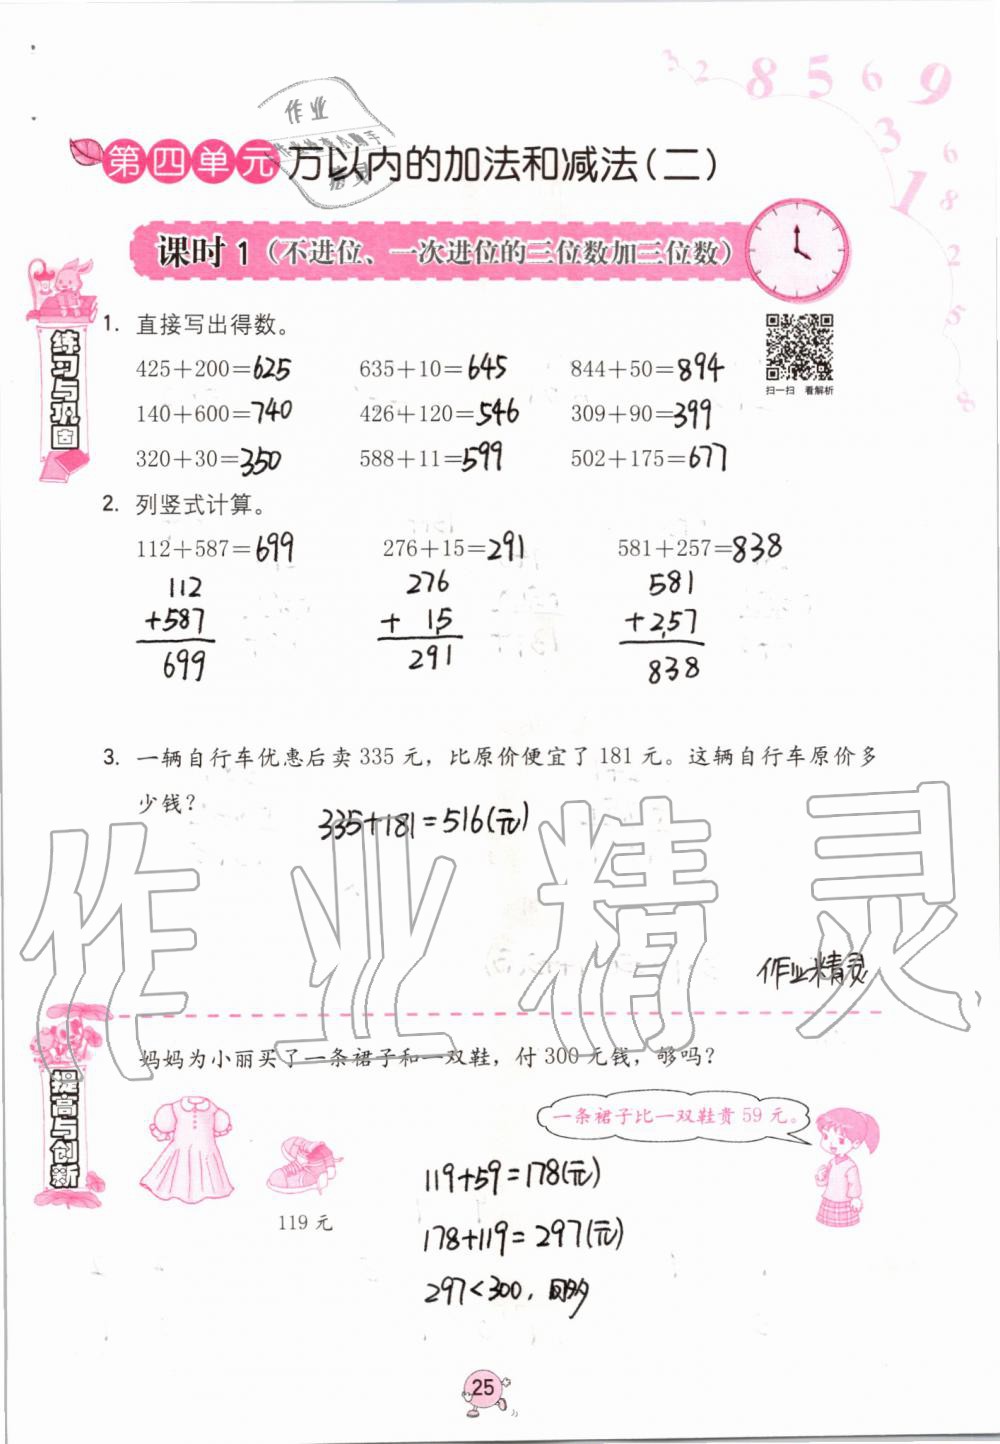 3 2 8 5 6 9 3 1 6 8 2 5 8
作业
作业检查小助手
精灵
第四单元 万以内的加法和减法(二)
课时1(不进位、一次进位的三位数加三位数)
练习与巩固
1. 直接写出得数。
扫一扫 看解析
425+200=625 635+10=645 844+50=894
140+600=740 426+120=546 309+90=399
320+30=350 588+11=599 502+175=677
2. 列竖式计算。
112+587=699 276+15=291 581+257=838
112 276 581
+587 + 15 +257
699 291 838
3. 一辆自行车优惠后卖 335 元,比原价便宜了 181 元。这辆自行车原价多
少钱?
335+181=516(元)
作业精灵
作业精灵
提高与创新
妈妈为小丽买了一条裙子和一双鞋,付 300 元钱,够吗?
一条裙子比一双鞋贵 59 元。
119 元
119+59=178(元)
178+119=297(元)
297<300,
25